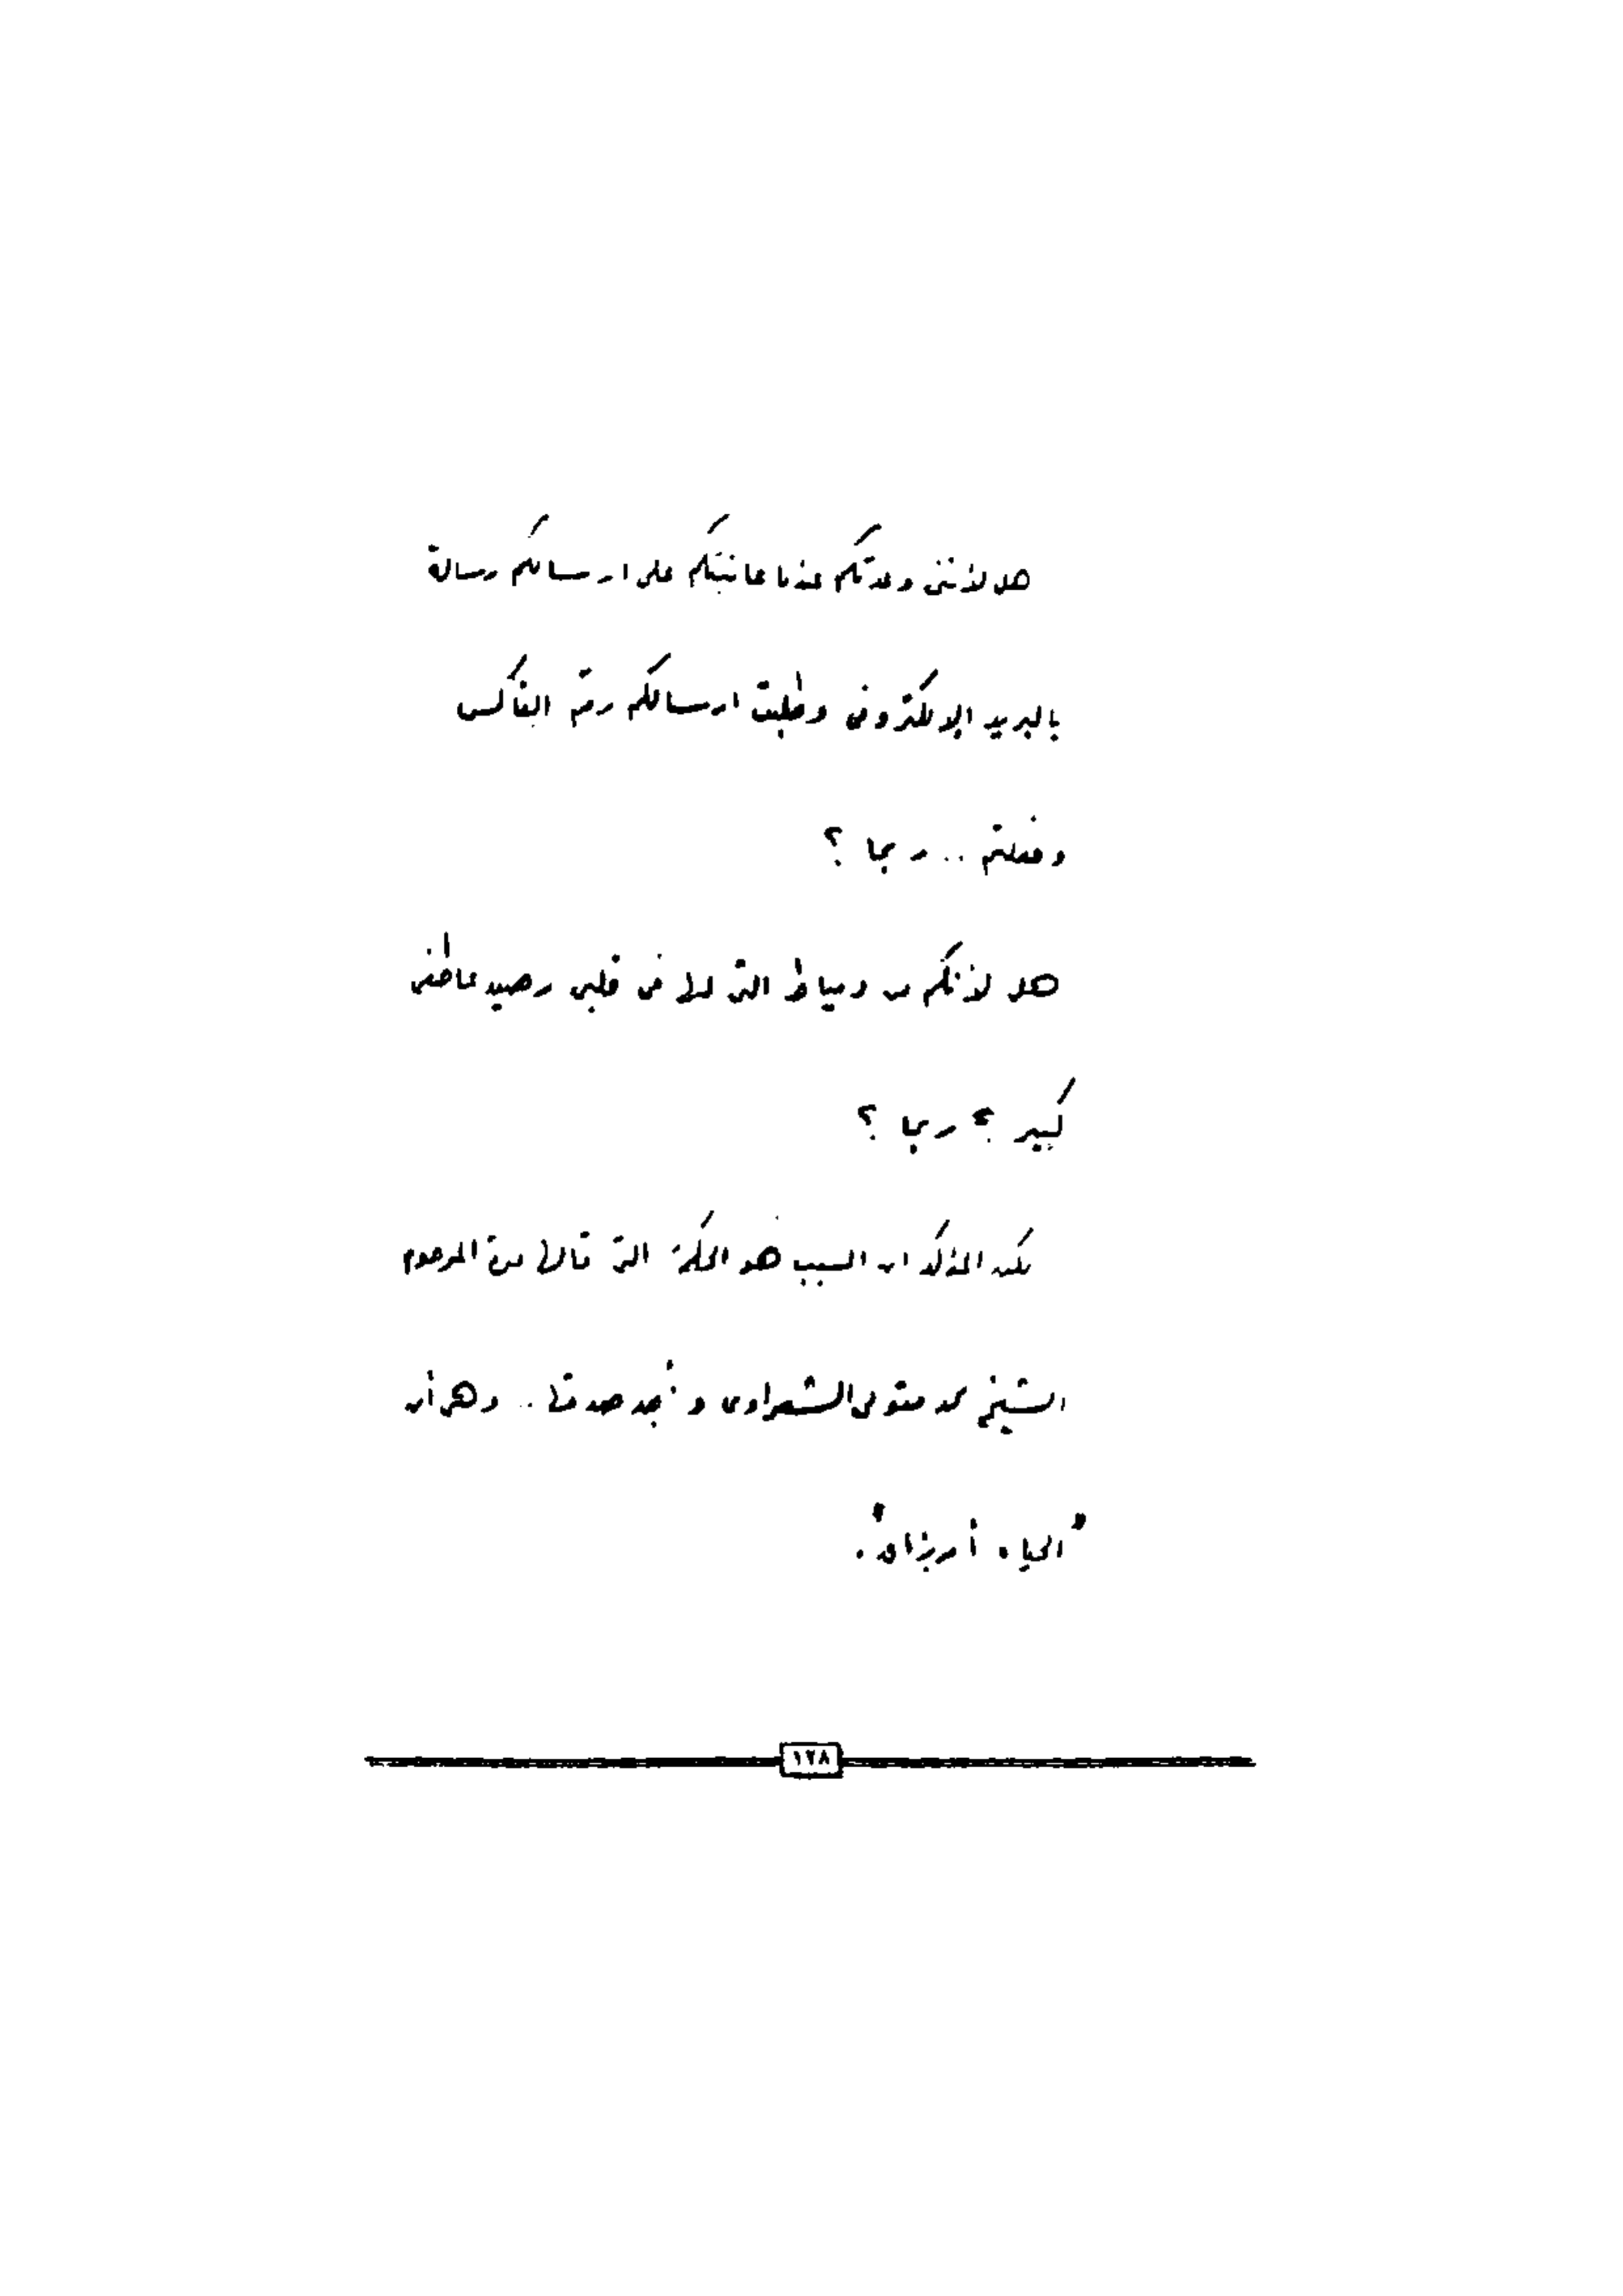 هل لأننى وعدتكم عندما عاتبتكم على ارسالكم رسالة
بالبريد الإلكترونى وطلبت ارسالكم رقم الفاكس
وفعلتم .. ربما ؟
هل لأنكم من دمياط التى لها فى قلبى رصيد عاطفى
كبير ؟ ربما ؟
لكن المؤكد ان السبب هو الحكمة التى قالها لى المرحوم
الشيخ محمد متولى الشعراوى و نجد صدقها .. وهى أن
"الحياه أرزاق".
١٢٨